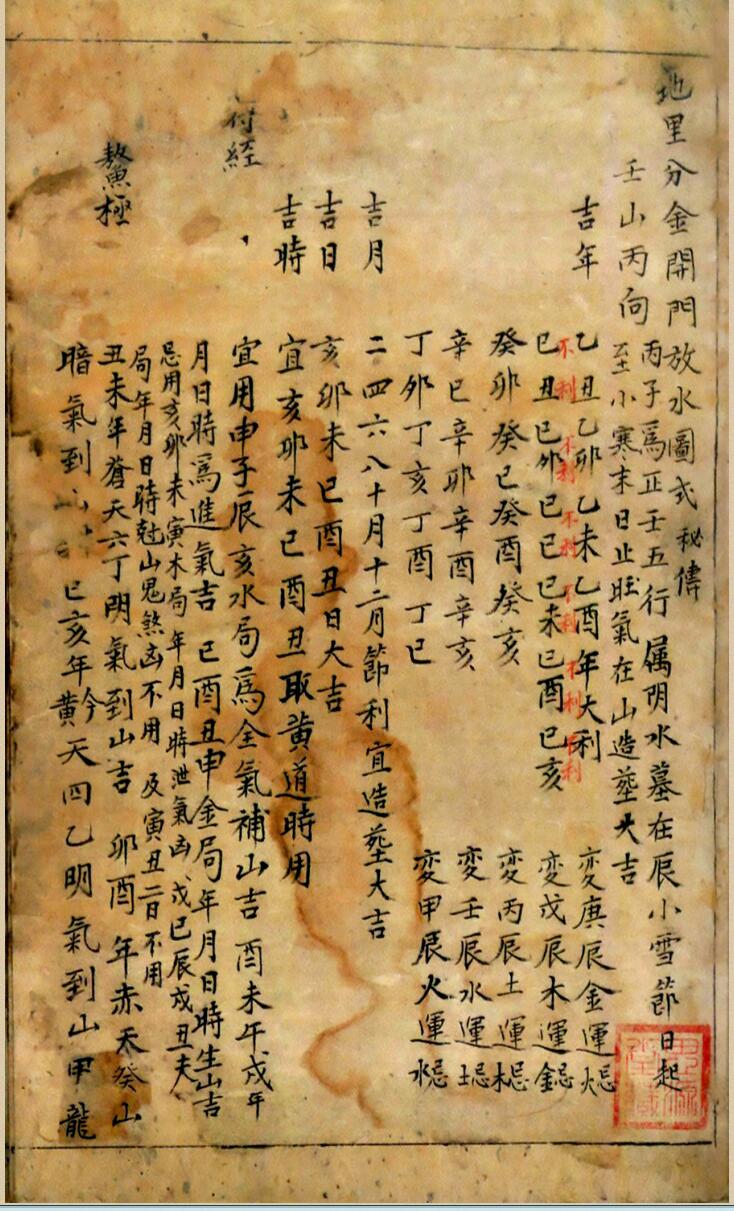 地里分金開門放水圖式秘傳
壬山丙向
丙子爲正壬五行属阴水墓在辰小雪節日起
至小寒末日止旺氣在山造塟大吉
吉年
乙丑乙卯乙未乙酉年大利
変庚辰金運忌火
不利 不利 不利 不利 不利 不利
己丑己卯己巳己未己酉己亥
変戊辰木運忌金
癸卯癸巳癸酉癸亥
変丙辰土運忌木
辛巳辛卯辛酉辛亥
変壬辰水運忌土
丁卯丁亥丁酉丁巳
変甲辰火運忌水
吉月
二四六八十月十二月節利宜造塟大吉
吉日
亥卯未巳酉丑日大吉
吉時
宜亥卯未巳酉丑取黄道時用
付経
宜用申子辰亥水局爲全氣補山吉 酉未午戌年
月日時爲進氣吉 巳酉丑申金局年月日時生山吉
忌用亥卯未寅木局年月日時泄氣凶 戌巳辰戌丑夫
局年月日時尅山鬼煞凶不用 及寅丑二日不用
鰲極
丑未年蒼天六丁阴氣到山吉 卯酉年赤天癸山
暗氣到 巳亥年今黄天四乙明氣到山甲龍